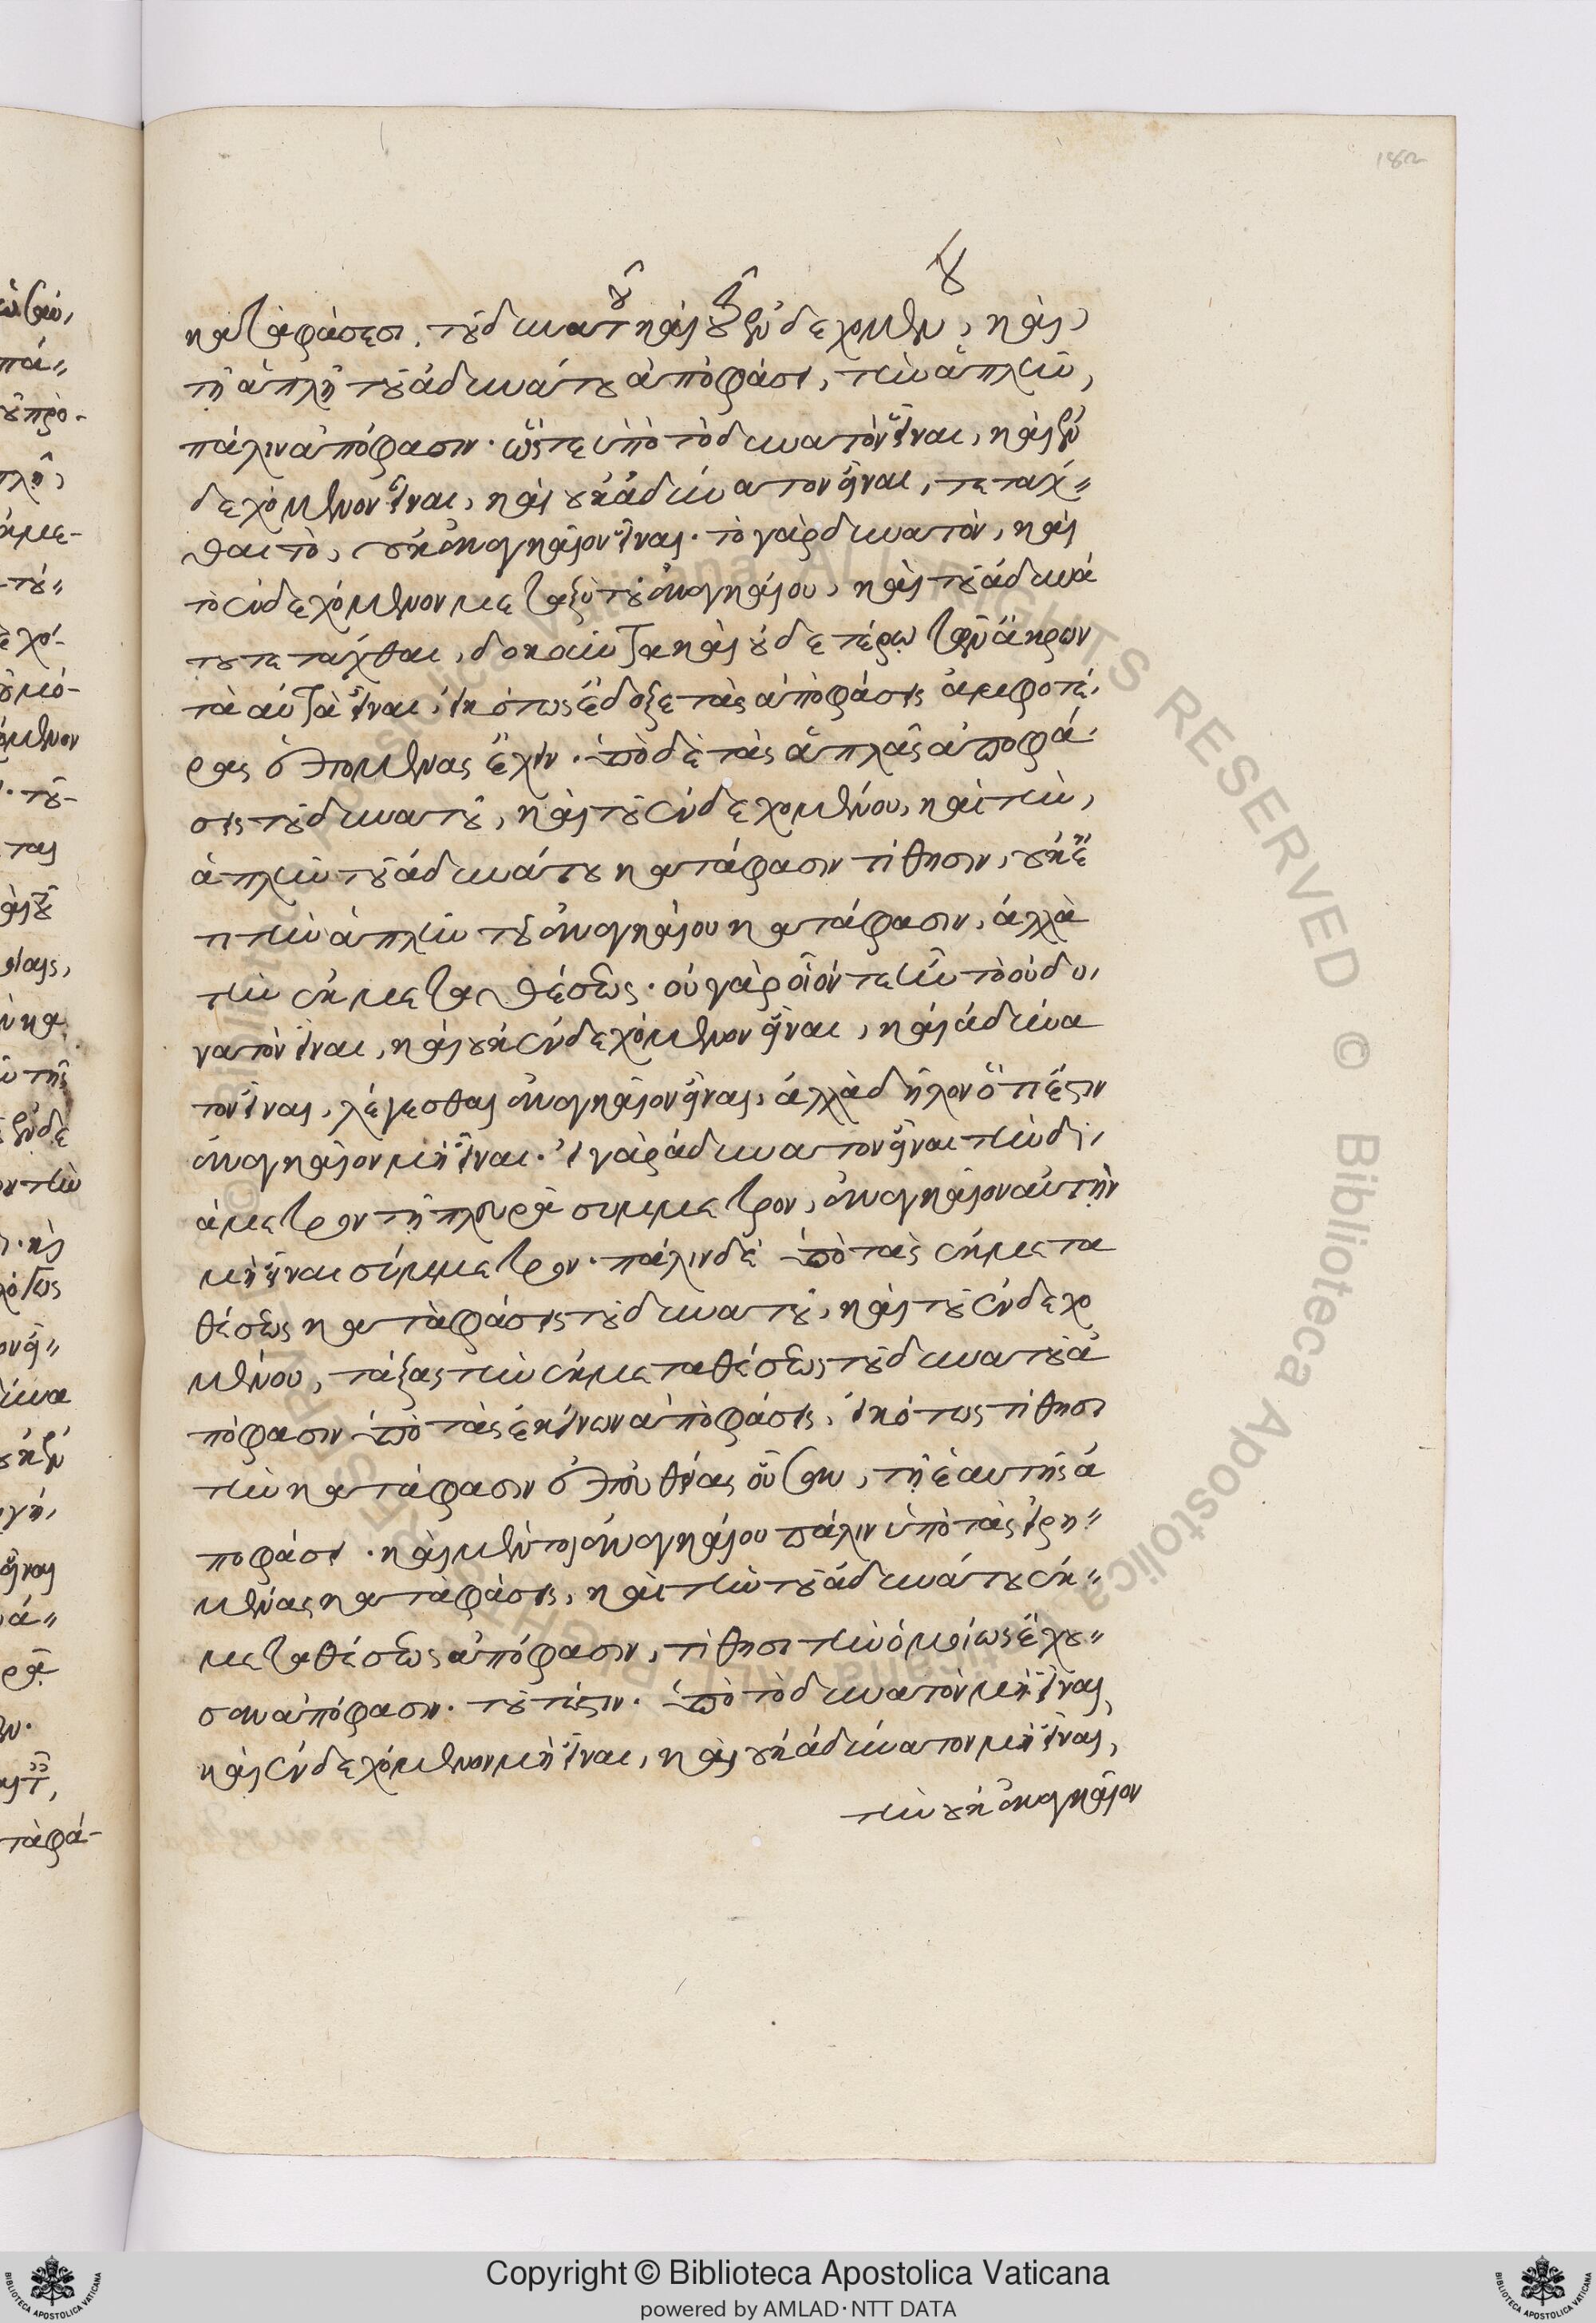 182
καταφάσεσι, τοῦ δυνατοῦ καὶ τοῦ ἐνδεχομένου, καὶ,
τῇ ἁπλῇ τοῦ ἀδυνάτου ἀποφάσει, τὴν ἁπλῆν,
πάλιν ἀπόφασιν. ὥστε ὑπὸ τὸ δυνατὸν εἶναι, καὶ ἐν
δεχόμενον εἶναι, καὶ οὐκ ἀδύνατον εἶναι, τετάχ
θαι τὸ, οὐκ ἀναγκαῖον εἶναι. τὸ γὰρ δυνατὸν, καὶ
τὸ ἐνδεχόμενον μεταξὺ τοῦ ἀναγκαίου, καὶ τοῦ ἀδυνά
του τετάχθαι, δοκοῦντα καὶ οὐδετέρῳ τῶν ἄκρων
τὰ αὐτὰ εἶναι, εἰκότως ἔδοξε τὰς ἀποφάσεις ἀμφοτέ
ρας ἑπομένας ἔχειν. ὑπὸ δὲ τὰς ἁπλᾶς ἀποφά
σεις τοῦ δυνατοῦ, καὶ τοῦ ἐνδεχομένου, καὶ τὴν,
ἁπλῆν τοῦ ἀδυνάτου κατάφασιν τίθησιν, οὐκ ἔ
τι τὴν ἁπλῆν τοῦ ἀναγκαίου κατάφασιν, ἀλλὰ
τὴν ἐκ μεταθέσεως. οὐ γὰρ οἷόν τε ἦν τὸ οὐ δυ
νατὸν εἶναι, καὶ οὐκ ἐνδεχόμενον εἶναι, καὶ ἀδύνα
τον εἶναι, λέγεσθαι ἀναγκαῖον εἶναι, ἀλλὰ δῆλον ὅτι ἔστιν
ἀναγκαῖον μὴ εἶναι. εἰ γὰρ ἀδύνατον εἶναι τὴν δι
άμετρον τῇ πλευρᾷ σύμμετρον, ἀναγκαῖον αὐτὴν
μὴ εἶναι σύμμετρον. πάλιν δὲ ὑπὸ τὰς ἐκ μετα
θέσεως καταφάσεις τοῦ δυνατοῦ, καὶ τοῦ ἐνδεχο
μένου, τάξας τὴν ἐκ μεταθέσεως τοῦ δυνατοῦ ἀ
πόφασιν ὑπὸ τὰς ἐκείνων ἀποφάσεις, εἰκότως τίθησι
τὴν κατάφασιν ἀκολουθείας οὖσαν, τῇ ἑαυτῆς ἀ
ποφάσει. καὶ μέντοι ἀναγκαίου πάλιν ὑπὸ τὰς εἰρη
μένας καταφάσεις, καὶ τὴν τοῦ ἀδυνάτου ἐκ
μεταθέσεως ἀπόφασιν, τίθησι τὴν ὁμοίως ἔχου
σαν ἀπόφασιν. τουτέστιν. ὑπὸ τὸ δυνατὸν μὴ εἶναι,
καὶ ἐνδεχόμενον μὴ εἶναι, καὶ οὐκ ἀδύνατον μὴ εἶναι,
τὴν οὐκ ἀναγκαῖον
Copyright © Biblioteca Apostolica Vaticana
powered by AMLAD·NTT DATA